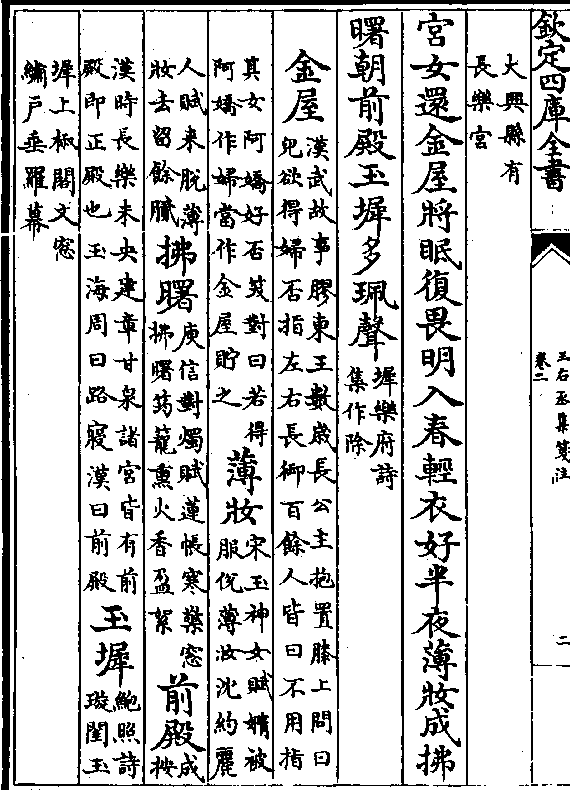 欽定四庫全書
王右丞集箋注
卷二
二
大興縣有
長樂宮
宮女還金屋將眠復畏明入春輕衣好半夜薄妝成拂
曙朝前殿玉墀多珮聲
墀樂府詩
集作除
金屋
漢武故事膠東王數歲長公主抱置膝上問曰
兒欲得婦否指左右長御百餘人皆曰不用指
其女阿嬌好否笑對曰若得
阿嬌作婦當作金屋貯之
薄妝
宋玉神女賦嫷被
服侻薄妝沈約麗
人賦来脫薄
妝去留餘膩
拂曙
庾信對燭賦蓮帳寒檠窓
拂曙筠籠熏火香盈絮
前殿
成
按
漢時長樂未央建章甘泉諸宮皆有前
殿即正殿也玉海周曰路寢漢曰前殿
玉墀
鮑照詩
璇閨玉
墀上椒閣文窓
繡戶垂羅幕